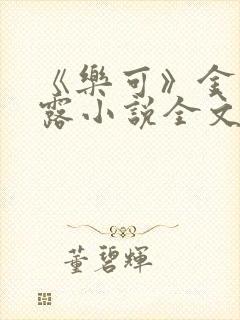 《樂可》金
露小說全文
董碧輝